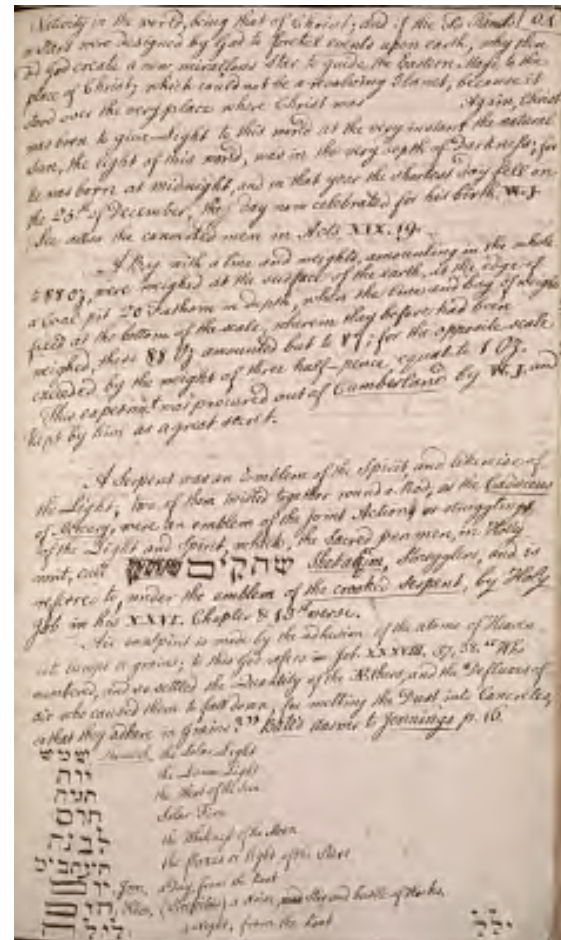 Nativity in the world, being that of Christ; and if the
Stars were designed by God to foretel events upon earth, why then
did God create a new miraculous Star to guide the Eastern Magi to the
place of Christ; which could not be a revolving Planet, because it
stood over the very place where Christ was Again, Christ
was born to give Light to this world at the very instant the natural
Sun, the light of this world, was in the very depth of Darkness; for
he was born at midnight, and in that year the shortest day fell on
the 25th of December, the day now celebrated for his birth. W.J.
See also the men in Acts XIX. 19.
A with a line and weights, amounting in the whole
88 oz, were weighed at the surface of the earth, at the edge of
a Coal pit 20 Fathom in depth, when the line and bag of weights
fixed at the bottom of the scale, wherein they before had been
weighed, these 88 oz amounted but to 87; for the opposite scale
exceeded by the weight of three half-pence, equal to 1 oz.
This experimt was procured out of Cumberland by W.J. and
kept by him as a great secret.
A Serpent was an Emblem of the Spirit and likewise of
the Light; two of them twisted together round a Rod, as the Caduceus
of Mercury, were an emblem of the joint Action, or struggling
of the Light and Spirit, which, the Sacred pen men, in Holy
writ, call שחקים Shehakim, Strugglers, and is
referred to, under the emblem of the crooked Serpent, by Holy
Job in his XXVI. Chapter & 13th verse.
Air or spirit is made by the adhesion of the atoms of Heaven
into lumps or grains; to this God refers in Job. XXXVIII. 37, 38. "Who
numbered, and so settled the Quantity of the Æthers, and the Defluxes of
air who caused them to fall down, for melting the Dust into Concretes,
so that they adhere in Grains?" Bate's answer to Jennings p. 16.
שמש the Solar Light
the Lunar Light
the Heat of the Sun
חרס Solar Fire
לבנה the Whiteness of the Moon
the fluxes or light of the Stars
יום Jom, a Day, from the Root
a Noise, and bustle of
ליל a Night, from the Root ילל